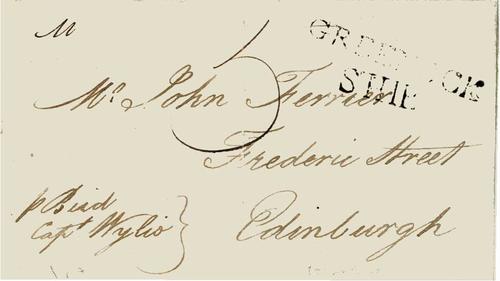 M
GREENOCK
SHIP
5
Mr. John Ferrier
Frederic Street
Edinburgh
p Bird
Capt Wylio